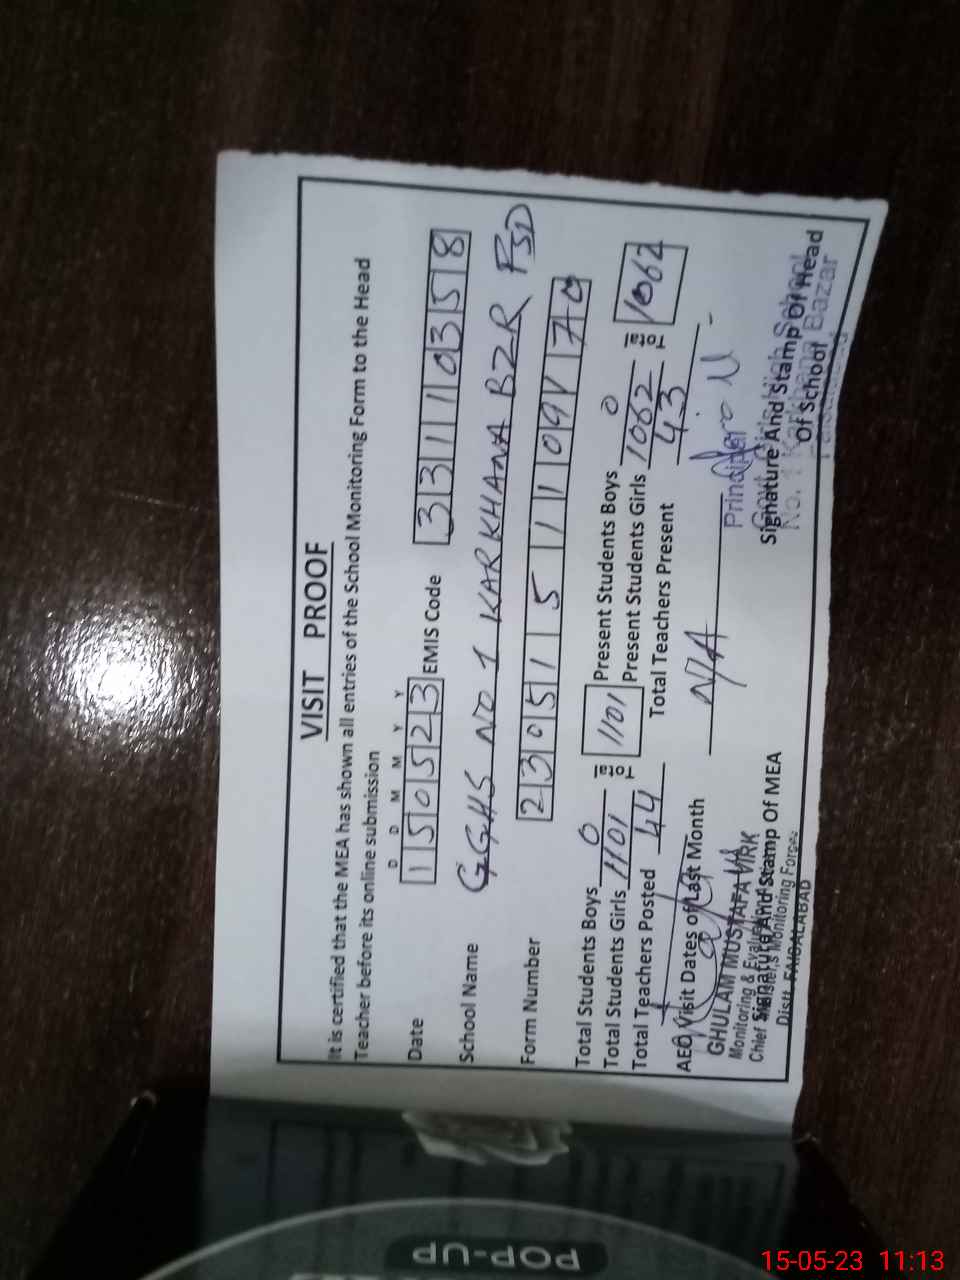 VISIT PROOF
It is certified that the MEA has shown all entries of the School Monitoring Form to the Head
Teacher before its online submission
D D M M Y Y
Date 150523 EMIS Code 33110358
School Name GGHS NO 1 KARKHANA BZR FSD
Form Number 2305151109170
Total Students Boys 0 Total 1101 Present Students Boys 0 Total 1062
Total Students Girls 1101 Present Students Girls 1062
Total Teachers Posted 44 Total Teachers Present 43
AEO Visit Dates of Last Month N/A
GHULAM MUSTAFA VIRK
Monitoring & Evaluation
Chief Minister's Monitoring Force
Distt. FAISALABAD
Signature And Stamp Of MEA
Principal
Govt. Girls High School
No. 1 Karkhana Bazar
Faisalabad
Signature And Stamp Of Head
Of School
POP-UP
15-05-23 11:13